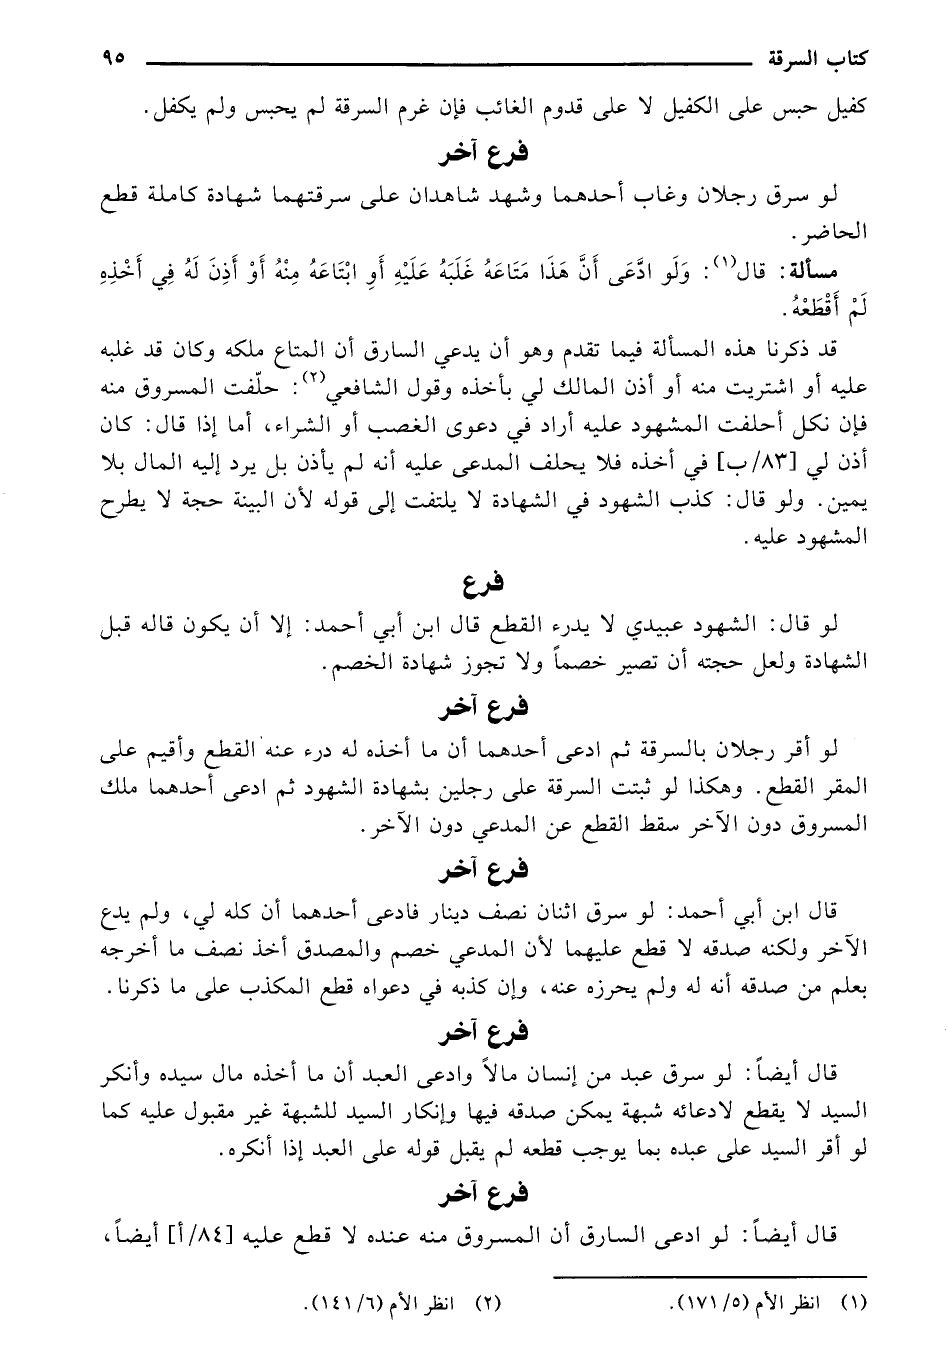 كتاب السرقة ٩٥
كفيل حبس على الكفيل لا على قدوم الغائب فإن غرم السرقة لم يحبس ولم يكفل.
فرع آخر
لو سرق رجلان وغاب أحدهما وشهد شاهدان على سرقتهما شهادة كاملة قطع
الحاضر.
مسألة: قال(١): وَلَو ادَّعَى أَنَّ هَذَا مَتَاعَهُ غَلَبَهُ عَلَيْهِ أَو ابْتَاعَهُ مِنْهُ أَوْ أَذِنَ لَهُ فِي أَخْذِهِ
لَمْ أَقْطَعْهُ.
قد ذكرنا هذه المسألة فيما تقدم وهو أن يدعي السارق أن المتاع ملكه وكان قد غلبه
عليه أو اشتريت منه أو أذن المالك لي بأخذه وقول الشافعي(٢): حلّفت المسروق منه
فإن نكل أحلفت المشهود عليه أراد في دعوى الغصب أو الشراء، أما إذا قال: كان
أذن لي [٨٣/ب] في أخذه فلا يحلف المدعى عليه أنه لم يأذن بل يرد إليه المال بلا
يمين. ولو قال: كذب الشهود في الشهادة لا يلتفت إلى قوله لأن البينة حجة لا يطرح
المشهود عليه.
فرع
لو قال: الشهود عبيدي لا يدرء القطع قال ابن أبي أحمد: إلا أن يكون قاله قبل
الشهادة ولعل حجته أن تصير خصماً ولا تجوز شهادة الخصم.
فرع آخر
لو أقر رجلان بالسرقة ثم ادعى أحدهما أن ما أخذه له درء عنه القطع وأقيم على
المقر القطع. وهكذا لو ثبتت السرقة على رجلين بشهادة الشهود ثم ادعى أحدهما ملك
المسروق دون الآخر سقط القطع عن المدعي دون الآخر.
فرع آخر
قال ابن أبي أحمد: لو سرق اثنان نصف دينار فادعى أحدهما أن كله لي، ولم يدع
الآخر ولكنه صدقه لا قطع عليهما لأن المدعي خصم والمصدق أخذ نصف ما أخرجه
بعلم من صدقه أنه له ولم يحرزه عنه، وإن كذبه في دعواه قطع المكذب على ما ذكرنا.
فرع آخر
قال أيضاً: لو سرق عبد من إنسان مالاً وادعى العبد أن ما أخذه مال سيده وأنكر
السيد لا يقطع لادعائه شبهة يمكن صدقه فيها وإنكار السيد للشبهة غير مقبول عليه كما
لو أقر السيد على عبده بما يوجب قطعه لم يقبل قوله على العبد إذا أنكره.
فرع آخر
قال أيضاً: لو ادعى السارق أن المسروق منه عنده لا قطع عليه [٨٤/أ] أيضاً،
(١) انظر الأم (٥/ ١٧١). (٢) انظر الأم (٦/ ١٤١).